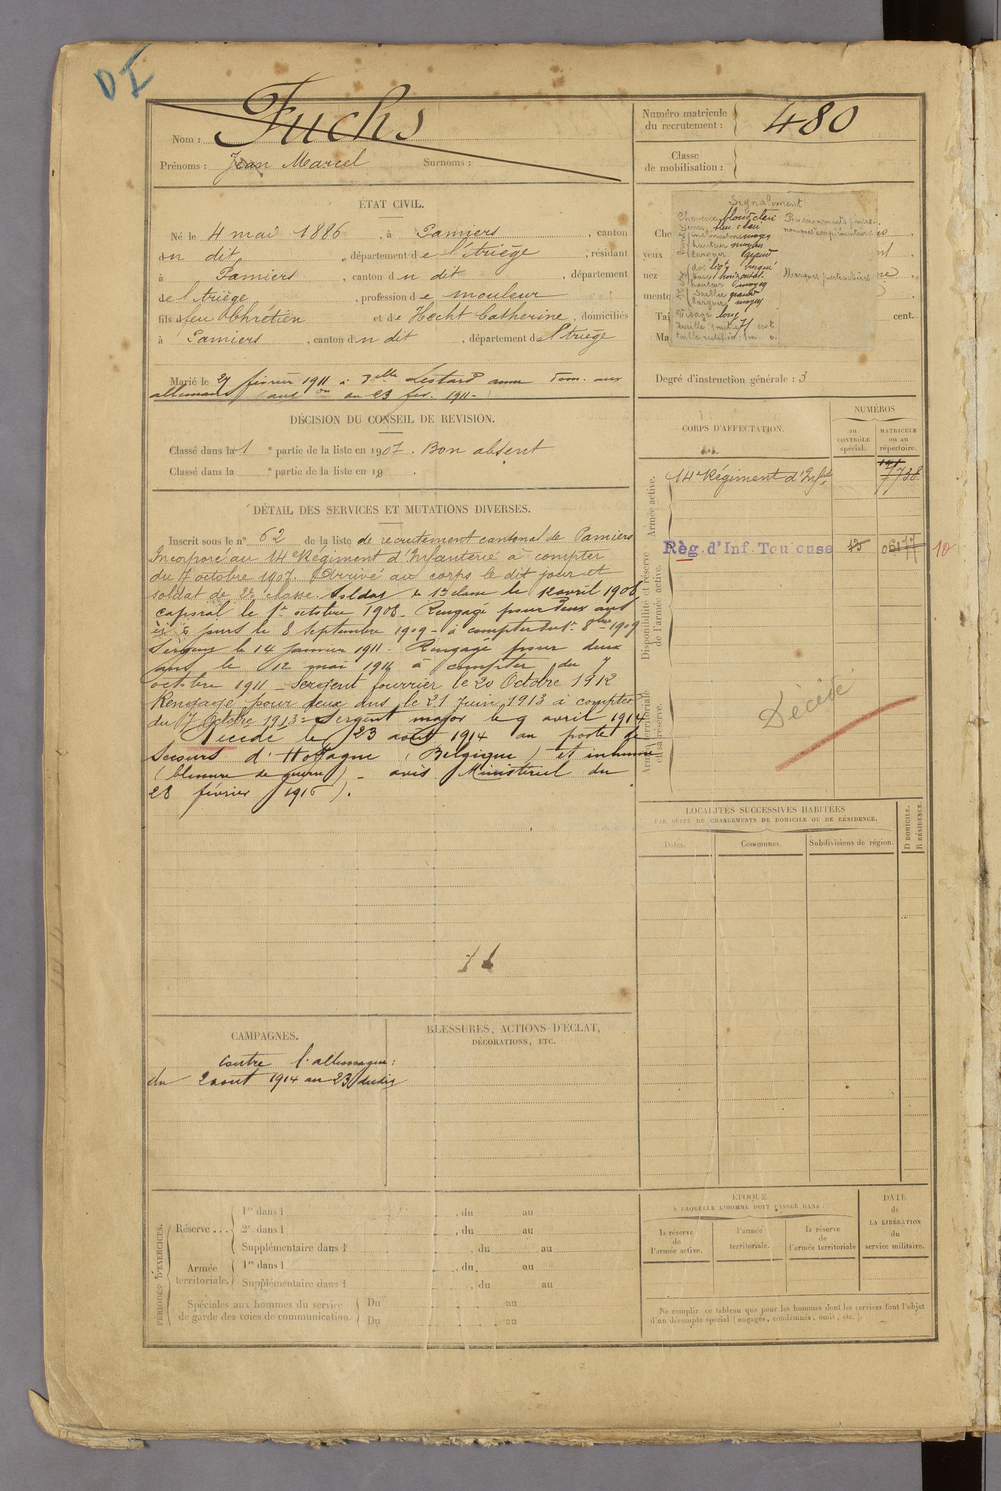 DI
Nom : Fuchs
Prénoms : Jean Marcel Surnoms :
ÉTAT CIVIL.
Né le 4 mai 1886, à Pamiers, canton
du dit, département de l'Ariège, résidant
à Pamiers, canton du dit, département
de l'Ariège, profession de mouleur
fils de feu Chrétien et de Hecht Catherine, domiciliés
à Pamiers, canton du dit, département de l'Ariège
Marié le 27 février 1911 à Delle Lestard anne Dom. aux
allemans (aut on du 23 fev. 1911.
DÉCISION DU CONSEIL DE REVISION.
Classé dans la 1 e partie de la liste en 1907. Bon absent
Classé dans la e partie de la liste en 19 .
DÉTAIL DES SERVICES ET MUTATIONS DIVERSES.
Inscrit sous le n° 62 de la liste de recrutement cantonal de Pamiers
Incorporé au 14e Régiment d'Infanterie à compter
du 7 octobre 1907. Arrivé au corps le dit jour et
soldat de 2e classe. Soldat de 1e classe le 12 avril 1908
caporal le 1er octobre 1908. Rengagé pour deux ans
et 6 jours le 8 septembre 1909 - à compter du 1er 8bre 1909
Sergent le 14 janvier 1911. Rengagé pour deux
ans le 12 mai 1911 à compter du 7
octobre 1911 - Sergent fourrier le 20 Octobre 1912
Rengagé pour deux ans le 21 Juin 1913 à compter
du 7 Octobre 1913 - Sergent major le 9 avril 1914
Décédé le 23 août 1914 au poste de
Secours d' (Belgique) et inhumé
(blessure de guerre) - avis Ministériel du
28 février 1916).
CAMPAGNES.
Contre l'allemagne :
du 2 aout 1914 au 23 dudit
BLESSURES, ACTIONS D'ÉCLAT,
DÉCORATIONS, ETC.
PÉRIODES D'EXERCICES.
Réserve ...
1re dans l , du au
2e dans l , du au
Supplémentaire dans l , du au
Armée territoriale.
1re dans l , du au
Supplémentaire dans l , du au
Spéciales aux hommes du service
de garde des voies de communication.
Du au
Du au
Numéro matricule
du recrutement : 480
Classe
de mobilisation :
Signalement
Cheveux blond clair
Renseignements physio-
nomiques complémentaires
Marques particulières
Visage long
yeux
nez
cent.
Degré d'instruction générale : 3
CORPS D'AFFECTATION.
NUMÉROS
au
CONTRÔLE
spécial.
MATRICULE
ou au
répertoire.
Armée active.
14e Régiment d'Infie
7728
Disponibilité et réserve
de l'armée active.
Rég. d'Inf. Toulouse
10
Armée territoriale
et sa réserve.
Décédé
LOCALITÉS SUCCESSIVES HABITÉES
PAR SUITE DE CHANGEMENTS DE DOMICILE OU DE RÉSIDENCE.
Dates.
Communes.
Subdivisions de région.
D DOMICILE.
R RÉSIDENCE.
ÉPOQUE
À LAQUELLE L'HOMME DOIT PASSER DANS :
la réserve
de
l'armée active.
l'armée
territoriale.
la réserve
de
l'armée territoriale
DATE
de
LA LIBÉRATION
du
service militaire.
Ne remplir ce tableau que pour les hommes dont les services font l'objet
d'un décompte spécial (engagés, condamnés, omis, etc.).